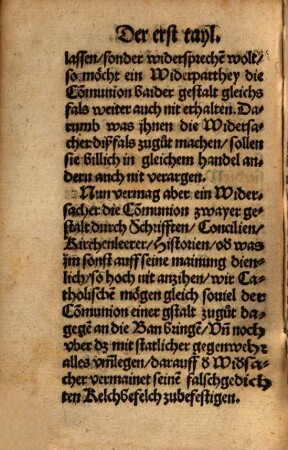 Der erst tayl.
lassen/sonder widersprechē wolt/
so möcht ein Widerparthey die
Cōmunion baider gestalt gleichs
fals weiter auch nit erhalten. Da-
rumb was jhnen die Widersa-
cher dißfals zugůt machen/sollen
sie billich in gleichem handel an-
dern auch nit verargen.
Nun vermag aber ein Wider-
sacher die Cōmunion zwayer ge-
stalt durch Schrifften/Concilien/
Kirchenleerer/Historien/oď was
jm sonst auff seine mainung dien-
lich/so hoch nit anzihen/wir Ca-
tholischē mögen gleich souiel der
Cōmunion einer gstalt zugůt da-
gegē an die Ban bringē/Vñ noch
vber dz mit statlicher gegenwehr
alles vm̄legen/darauff ď Wiďsa-
cher vermainet seinē falschgedich
ten Kelchbefelch zubefestigen.